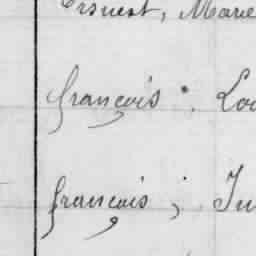 Ernest, Marie
françois. Lou
français; Ju